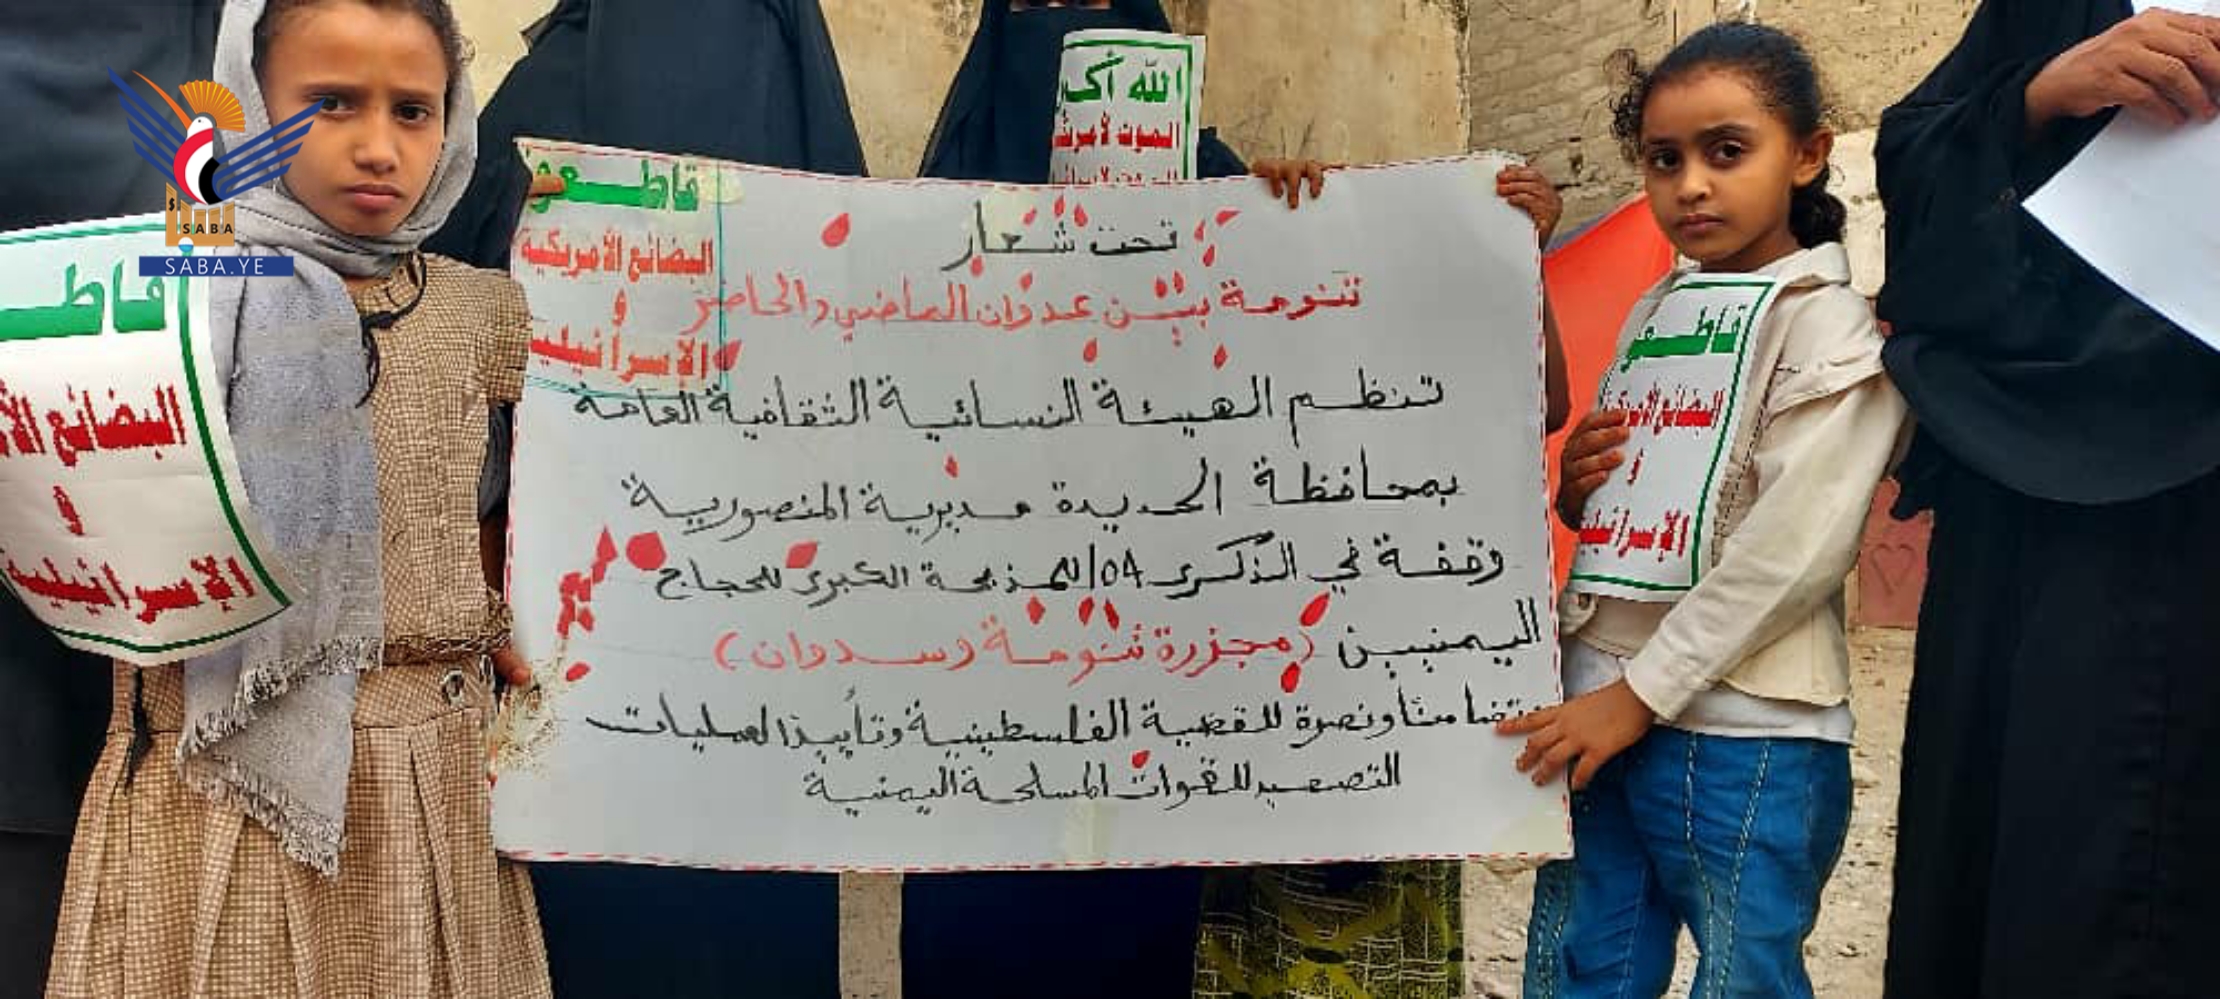 SABA
SABA.YE
الله أكبر
الموت لأمريكا
قاطعوا
البضائع الأمريكية
و
الإسرائيلية
تحت شعار
تنومة بين عدوان الماضي والحاضر
تنظم الهيئة النسائية الثقافية العامة
بمحافظة الحديدة مديرية المنصورية
وقفة في الذكرى 104 للمذبحة الكبرى للحجاج
اليمنيين (مجزرة تنومة وسدوان)
وتضامنا ونصرة للقضية الفلسطينية وتأييدا لعمليات
التصعيد للقوات المسلحة اليمنية
قاطـ
البضائع الأ
و
الإسرائيلية
قاطعو
البضائع الأمريكية
و
الإسرائيلية